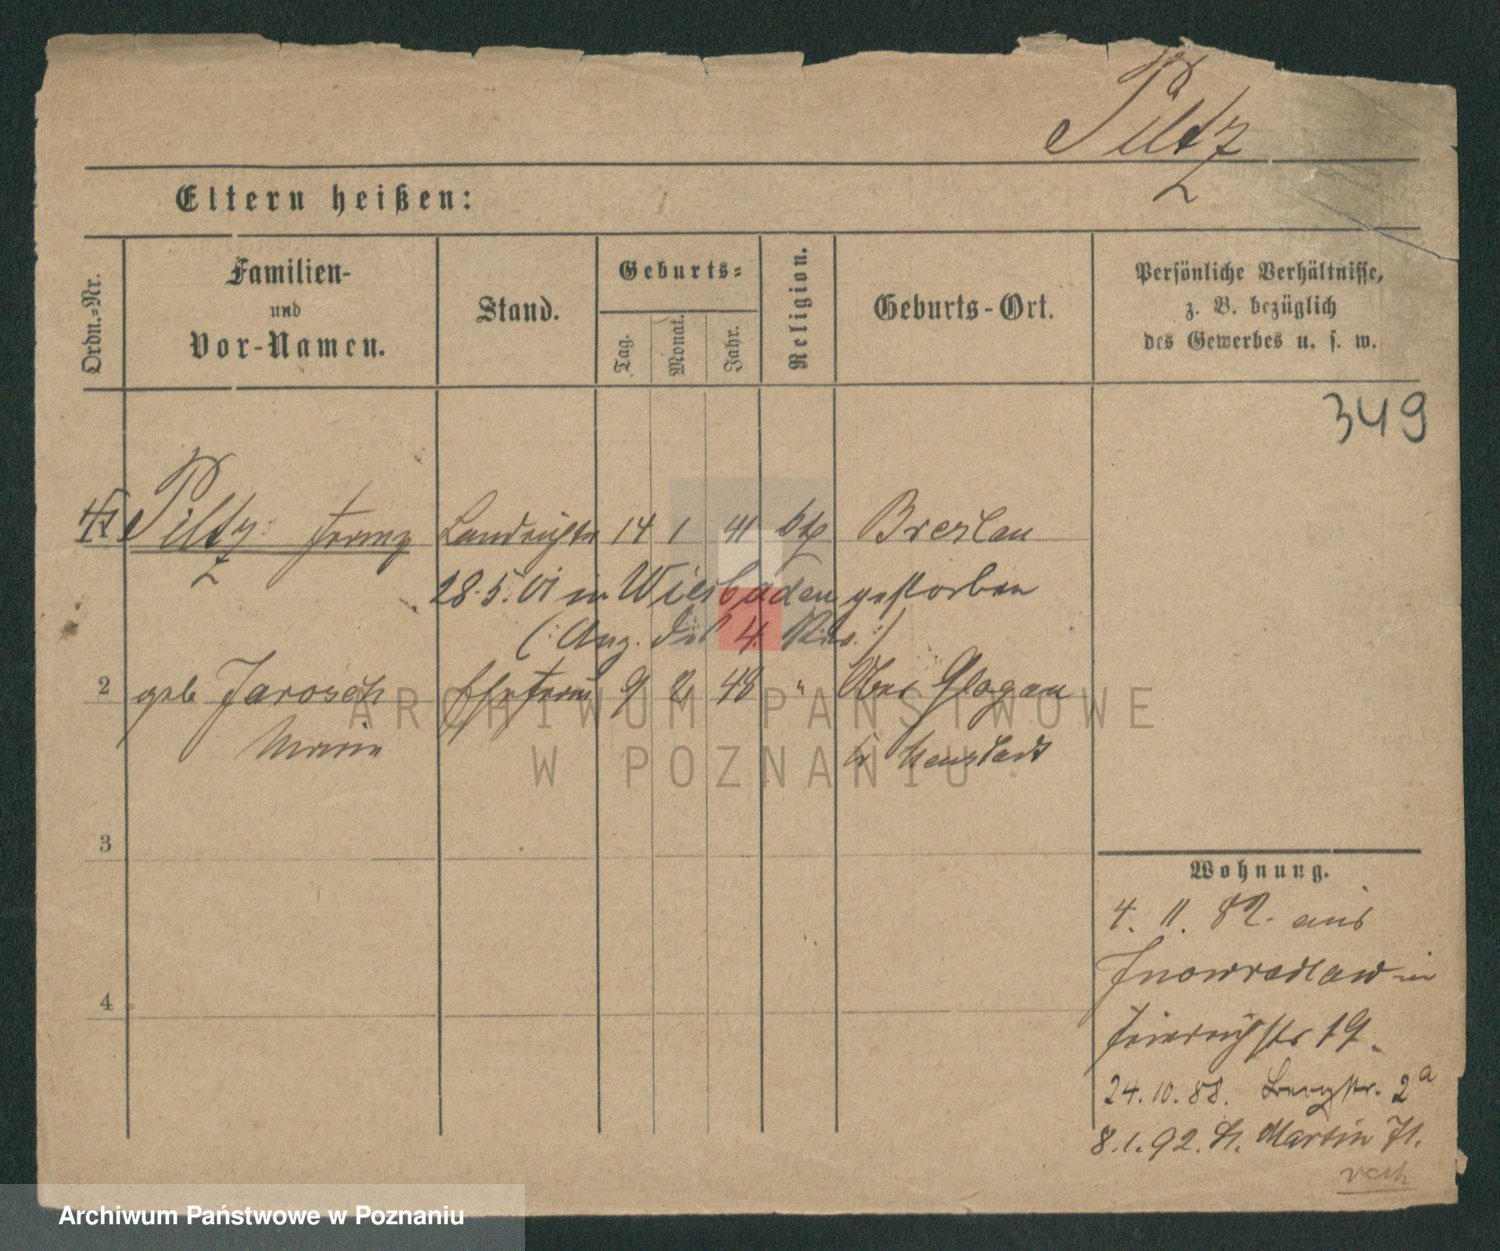 Piltz
Eltern heißen:
Ordn.-Nr.
Familien-
und
Vor-Namen.
Stand.
Geburts-
Tag.
Monat.
Jahr.
Religion.
Geburts-Ort.
Persönliche Verhältnisse,
z. B. bezüglich
des Gewerbes u. s. w.
349
Piltz Landrichter 14 1 41 Breslau
28.5.01 in Wiesbaden gestorben
(: Anz. des 4. Rev. :)
2 geb Jarosch Ehefrau 9 2 48 " Ober Glogau
Marie Neustadt
3
4
Wohnung.
4. 11. 82. aus
Inowradlaw in
Friedrichstr 19.
24.10.88. Bergstr. 2a
8.1.92. St. Martin 71.
verh
ARCHIWUM PAŃSTWOWE
W POZNANIU
Archiwum Państwowe w Poznaniu